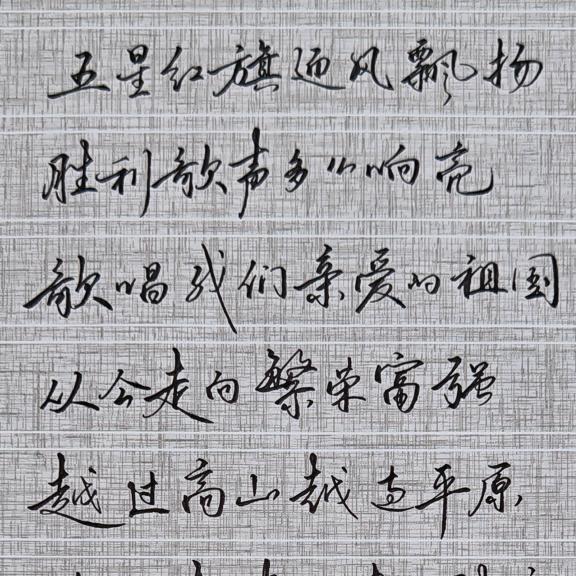 五星红旗迎风飘扬
胜利歌声多么响亮
歌唱我们亲爱的祖国
从今走向繁荣富强
越过高山越过平原